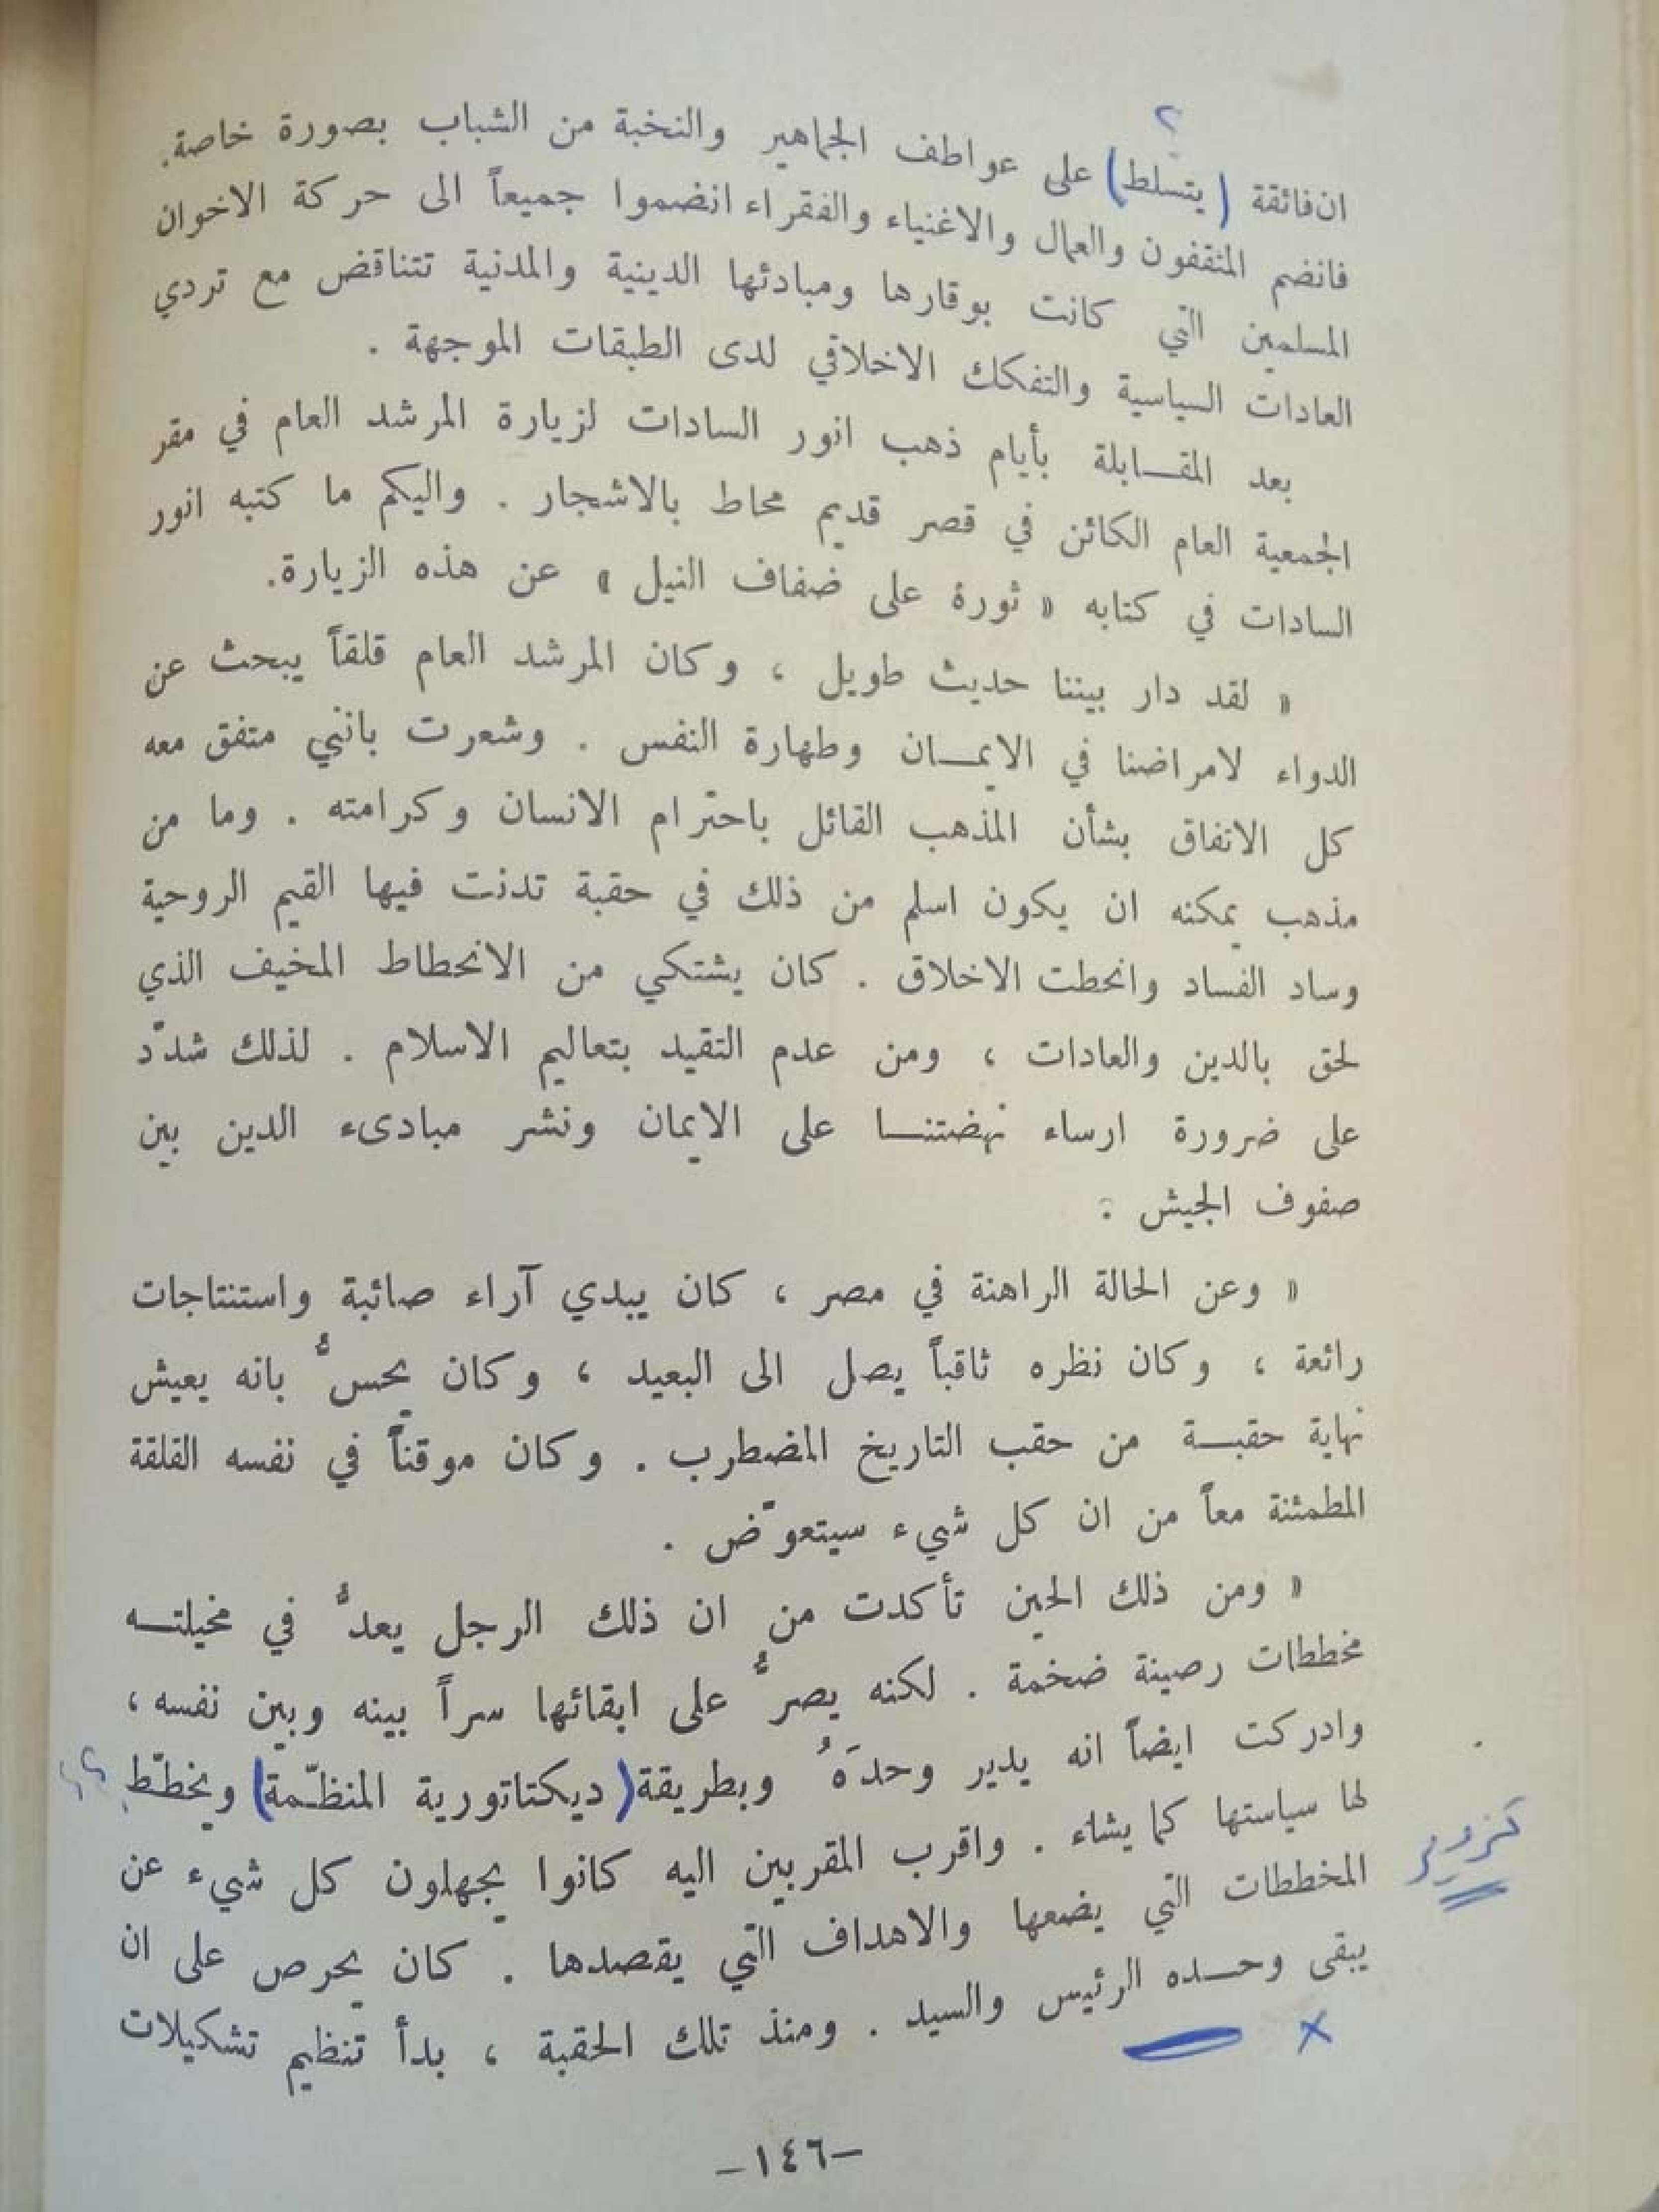 ؟
ان فائقة (يتسلط) على عواطف الجماهير والنخبة من الشباب بصورة خاصة.
فانضم المثقفون والعمال والاغنياء والفقراء انضموا جميعاً الى حركة الاخوان
المسلمين التي كانت بوقارها ومبادئها الدينية والمدنية تتناقض مع تردي
العادات السياسية والتفكك الاخلاقي لدى الطبقات الموجهة .
بعد المقـابلة بأيام ذهب انور السادات لزيارة المرشد العام في مقر
الجمعية العام الكائن في قصر قديم محاط بالاشجار . واليكم ما كتبه انور
السادات في كتابه « ثورة على ضفاف النيل » عن هذه الزيارة.
« لقد دار بيننا حديث طويل ، وكان المرشد العام قلقاً يبحث عن
الدواء لامراضنا في الايمـان وطهارة النفس . وشعرت بانني متفق معه
كل الاتفاق بشأن المذهب القائل باحترام الانسان وكرامته . وما من
مذهب يمكنه ان يكون اسلم من ذلك في حقبة تدنت فيها القيم الروحية
وساد الفساد وانحطت الاخلاق . كان يشتكي من الانحطاط المخيف الذي
لحق بالدين والعادات ، ومن عدم التقيد بتعاليم الاسلام . لذلك شدّد
على ضرورة ارساء نهضتنـا على الايمان ونشر مبادىء الدين بين
صفوف الجيش .
« وعن الحالة الراهنة في مصر ، كان يبدي آراء صائبة واستنتاجات
رائعة ، وكان نظره ثاقباً يصل الى البعيد ، وكان يحسُّ بانه يعيش
نهاية حقبـة من حقب التاريخ المضطرب . وكان موقناً في نفسه القلقة
المطمئنة معاً من ان كل شيء سيتعوّض .
« ومن ذلك الحين تأكدت من ان ذلك الرجل يعدُّ في مخيلتـه
مخططات رصينة ضخمة . لكنه يصرُّ على ابقائها سراً بينه وبين نفسه ،
وادركت ايضاً انه يدير وحدَهُ وبطريقة (ديكتاتورية المنظّمة) ويخطّط ؟؟
لها سياستها كما يشاء . واقرب المقربين اليه كانوا يجهلون كل شيء عن
المخططات التي يضعها والاهداف التي يقصدها . كان يحرص على ان
يبقى وحـده الرئيس والسيد . ومنذ تلك الحقبة ، بدأ تنظيم تشكيلات
تزوير
×
–١٤٦–